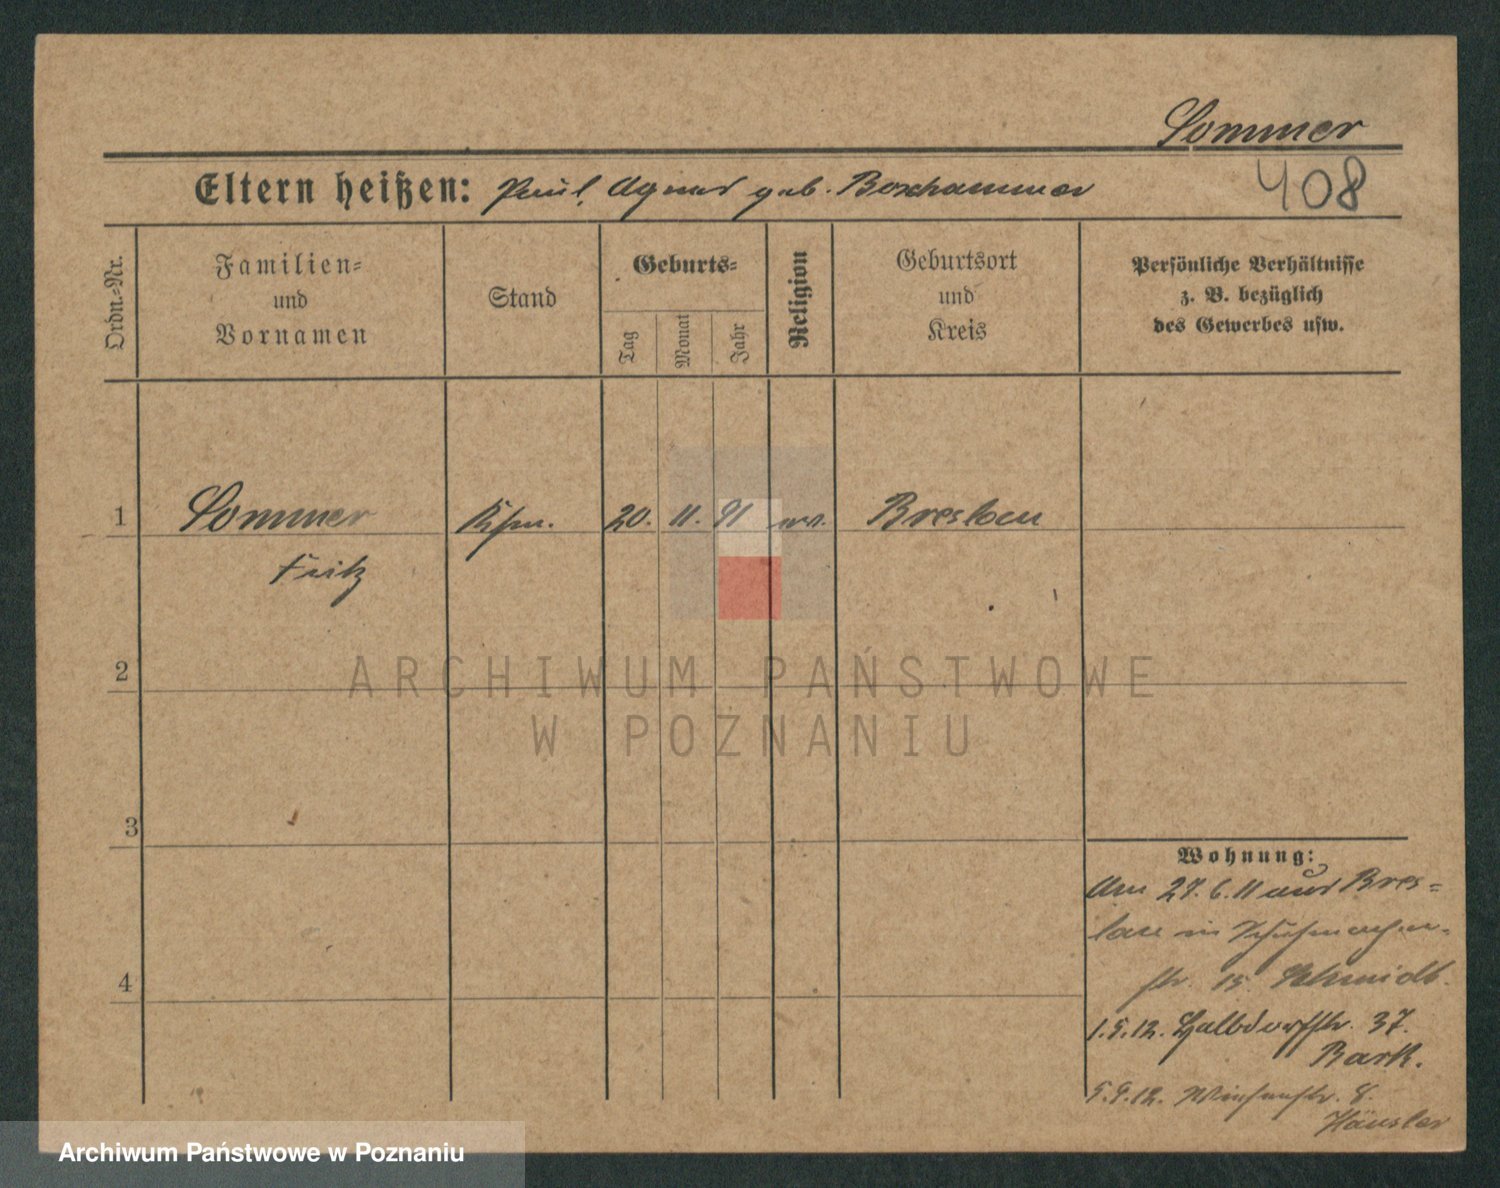 Sommer
408
Eltern heißen: Paul, Agnes geb. Boxhammer
Ordn.-Nr.
Familien-
und
Vornamen
Stand
Geburts-
Tag
Monat
Jahr
Religion
Geburtsort
und
Kreis
Persönliche Verhältnisse
z. B. bezüglich
des Gewerbes usw.
1
Sommer
Kfm.
20. 11. 91
Breslau
Fritz
2
ARCHIWUM PAŃSTWOWE
W POZNANIU
3
Wohnung:
Am 27.6.11 aus Bres=
lau in Schuhmacher-
str. 15. Schmidt.
4
1.5.12. Halbdorfstr. 37.
Bark.
5.9.12. Wiesenstr. 8.
Häusler
Archiwum Państwowe w Poznaniu